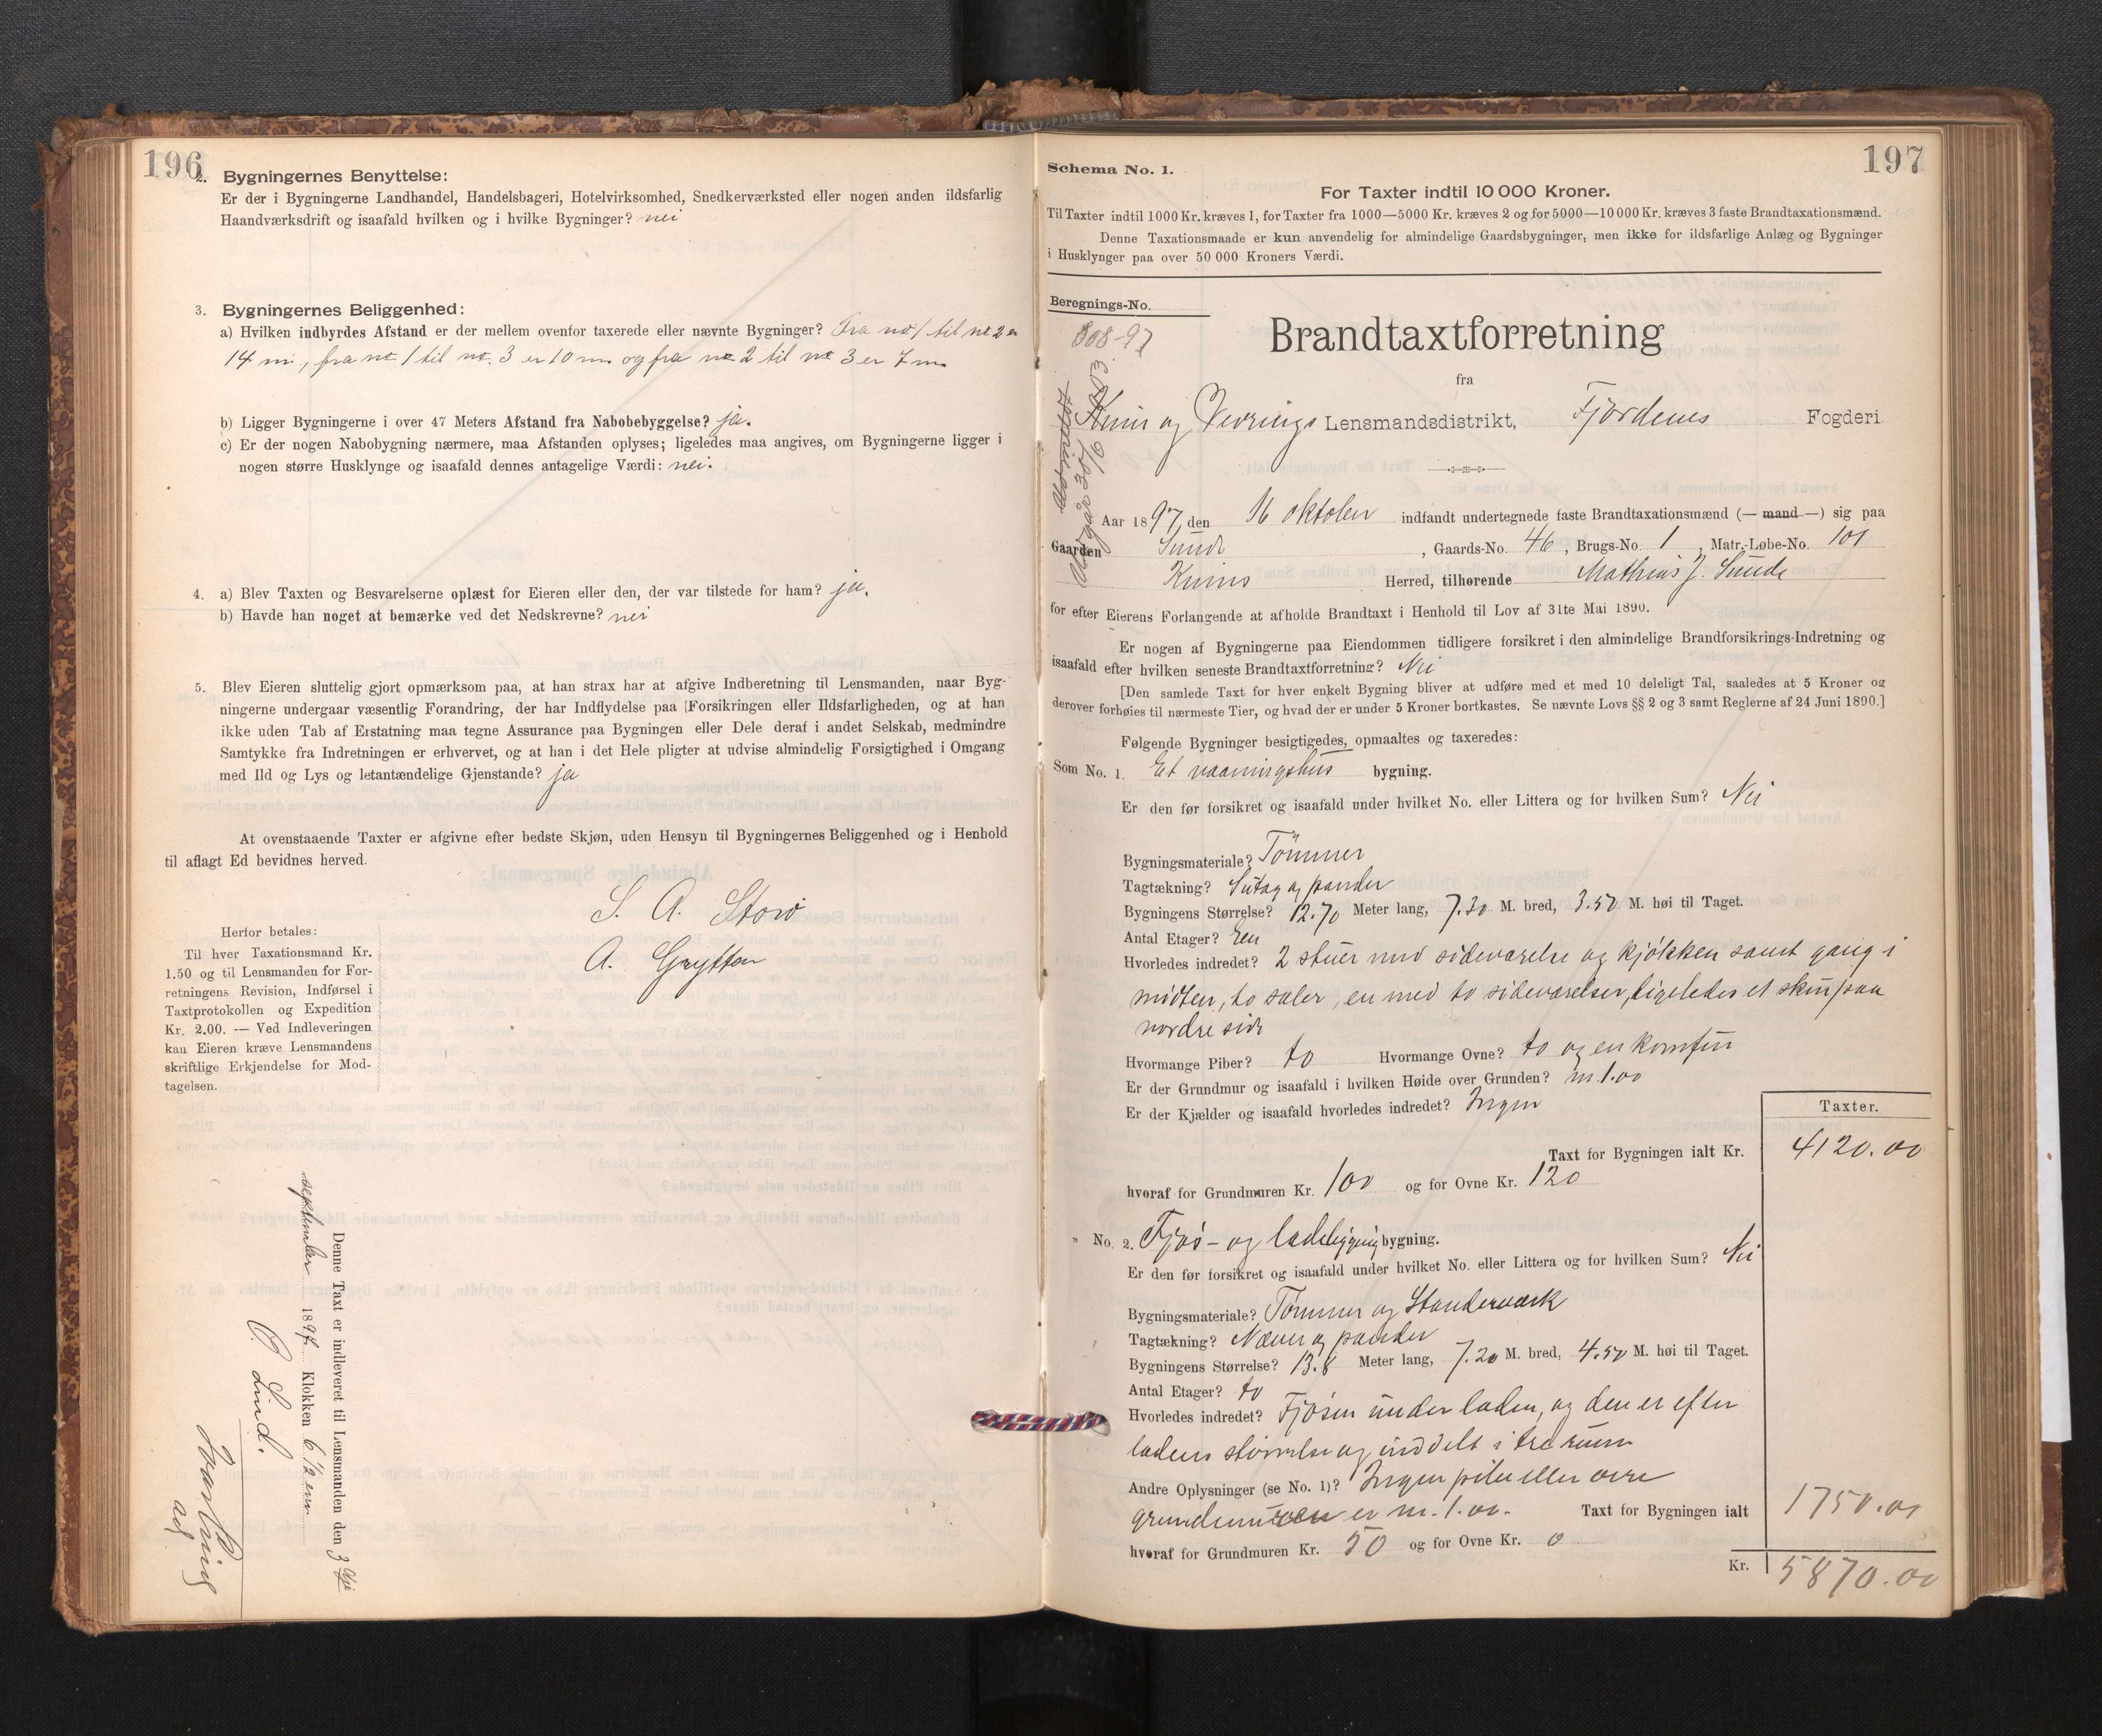 196
2. Bygningernes Benyttelse:
Er der i Bygningerne Landhandel, Handelsbageri, Hotelvirksomhed, Snedkerværksted eller nogen anden ildsfarlig
Haandværksdrift og isaafald hvilken og i hvilke Bygninger? nei
3. Bygningernes Beliggenhed:
a) Hvilken indbyrdes Afstand er der mellem ovenfor taxerede eller nævnte Bygninger? Fra no 1 til no 2 er
14 m., fra no 1 til no. 3 er 10 m. og fra no 2 til no 3 er 7 m.
b) Ligger Bygningerne i over 47 Meters Afstand fra Nabobebyggelse? ja.
c) Er der nogen Nabobygning nærmere, maa Afstanden oplyses; ligeledes maa angives, om Bygningerne ligger i
nogen større Husklynge og isaafald dennes antagelige Værdi: nei.
4. a) Blev Taxten og Besvarelserne oplæst for Eieren eller den, der var tilstede for ham? ja.
b) Havde han noget at bemærke ved det Nedskrevne? nei
5. Blev Eieren sluttelig gjort opmærksom paa, at han strax har at afgive Indberetning til Lensmanden, naar Byg-
ningerne undergaar væsentlig Forandring, der har Indflydelse paa Forsikringen eller Ildsfarligheden, og at han
ikke uden Tab af Erstatning maa tegne Assurance paa Bygningen eller Dele deraf i andet Selskab, medmindre
Samtykke fra Indretningen er erhvervet, og at han i det Hele pligter at udvise almindelig Forsigtighed i Omgang
med Ild og Lys og letantændelige Gjenstande? ja
At ovenstaaende Taxter er afgivne efter bedste Skjøn, uden Hensyn til Bygningernes Beliggenhed og i Henhold
til aflagt Ed bevidnes herved.
S. A. Storø
A. Grytten
Herfor betales:
Til hver Taxationsmand Kr.
1.50 og til Lensmanden for For-
retningens Revision, Indførsel i
Taxtprotokollen og Expedition
Kr. 2.00. — Ved Indleveringen
kan Eieren kræve Lensmandens
skriftlige Erkjendelse for Mod-
tagelsen.
Denne Taxt er indleveret til Lensmanden den 3die
september 1897. Klokken 6 1/2 em.
O. Lind.
197
Schema No. 1.
For Taxter indtil 10 000 Kroner.
Til Taxter indtil 1000 Kr. kræves 1, for Taxter fra 1000—5000 Kr. kræves 2 og for 5000—10 000 Kr. kræves 3 faste Brandtaxationsmænd.
Denne Taxationsmaade er kun anvendelig for almindelige Gaardsbygninger, men ikke for ildsfarlige Anlæg og Bygninger
i Husklynger paa over 50 000 Kroners Værdi.
Beregnings-No.
808-97
Brandtaxtforretning
fra
Kinn og Vevrings Lensmandsdistrikt, Fjordenes Fogderi
Aar 1897, den 16 oktober indfandt undertegnede faste Brandtaxationsmænd (— mand —) sig paa
Gaarden Sunde, Gaards-No. 46, Brugs-No. 1, Matr.-Løbe-No. 101
Kinns Herred, tilhørende Mathias J. Sunde
for efter Eierens Forlangende at afholde Brandtaxt i Henhold til Lov af 31te Mai 1890.
Er nogen af Bygningerne paa Eiendommen tidligere forsikret i den almindelige Brandforsikrings-Indretning og
isaafald efter hvilken seneste Brandtaxtforretning? Nei
[Den samlede Taxt for hver enkelt Bygning bliver at udføre med et med 10 deleligt Tal, saaledes at 5 Kroner og
derover forhøies til nærmeste Tier, og hvad der er under 5 Kroner bortkastes. Se nævnte Lovs §§ 2 og 3 samt Reglerne af 24 Juni 1890.]
Følgende Bygninger besigtigedes, opmaaltes og taxeredes:
Som No. 1. Et vaaningshus bygning.
Er den før forsikret og isaafald under hvilket No. eller Littera og for hvilken Sum? Nei
Bygningsmateriale? Tømmer
Tagtækning? Sutag og pander
Bygningens Størrelse? 12.70 Meter lang, 7.30 M. bred, 3.50 M. høi til Taget.
Antal Etager? Een
Hvorledes indredet? 2 stuer med sideværelse og kjøkken samt gang i
midten, to saler, en med to sideværelser, ligeledes et skur paa
nordre side
Hvormange Piber? to Hvormange Ovne? to og en komfur
Er der Grundmur og isaafald i hvilken Høide over Grunden? m. 1.00
Er der Kjælder og isaafald hvorledes indredet? Ingen
Taxter.
Taxt for Bygningen ialt Kr. 4120.00
hvoraf for Grundmuren Kr. 100 og for Ovne Kr. 120
" No. 2. Fjøs- og lade bygning.
Er den før forsikret og isaafald under hvilket No. eller Littera og for hvilken Sum? Nei
Bygningsmateriale? Tømmer og Standerværk
Tagtækning? Næver og pander
Bygningens Størrelse? 13.8 Meter lang, 7.20 M. bred, 4.50 M. høi til Taget.
Antal Etager? to
Hvorledes indredet? Fjøsen under laden, og den er efter
ladens størrelse og inddelt i tre rum
Andre Oplysninger (se No. 1)? Ingen piber eller ovne
grundmuren er m. 1.00. Taxt for Bygningen ialt 1750.00
hvoraf for Grundmuren Kr. 50 og for Ovne Kr. 0
Kr. 5870.00